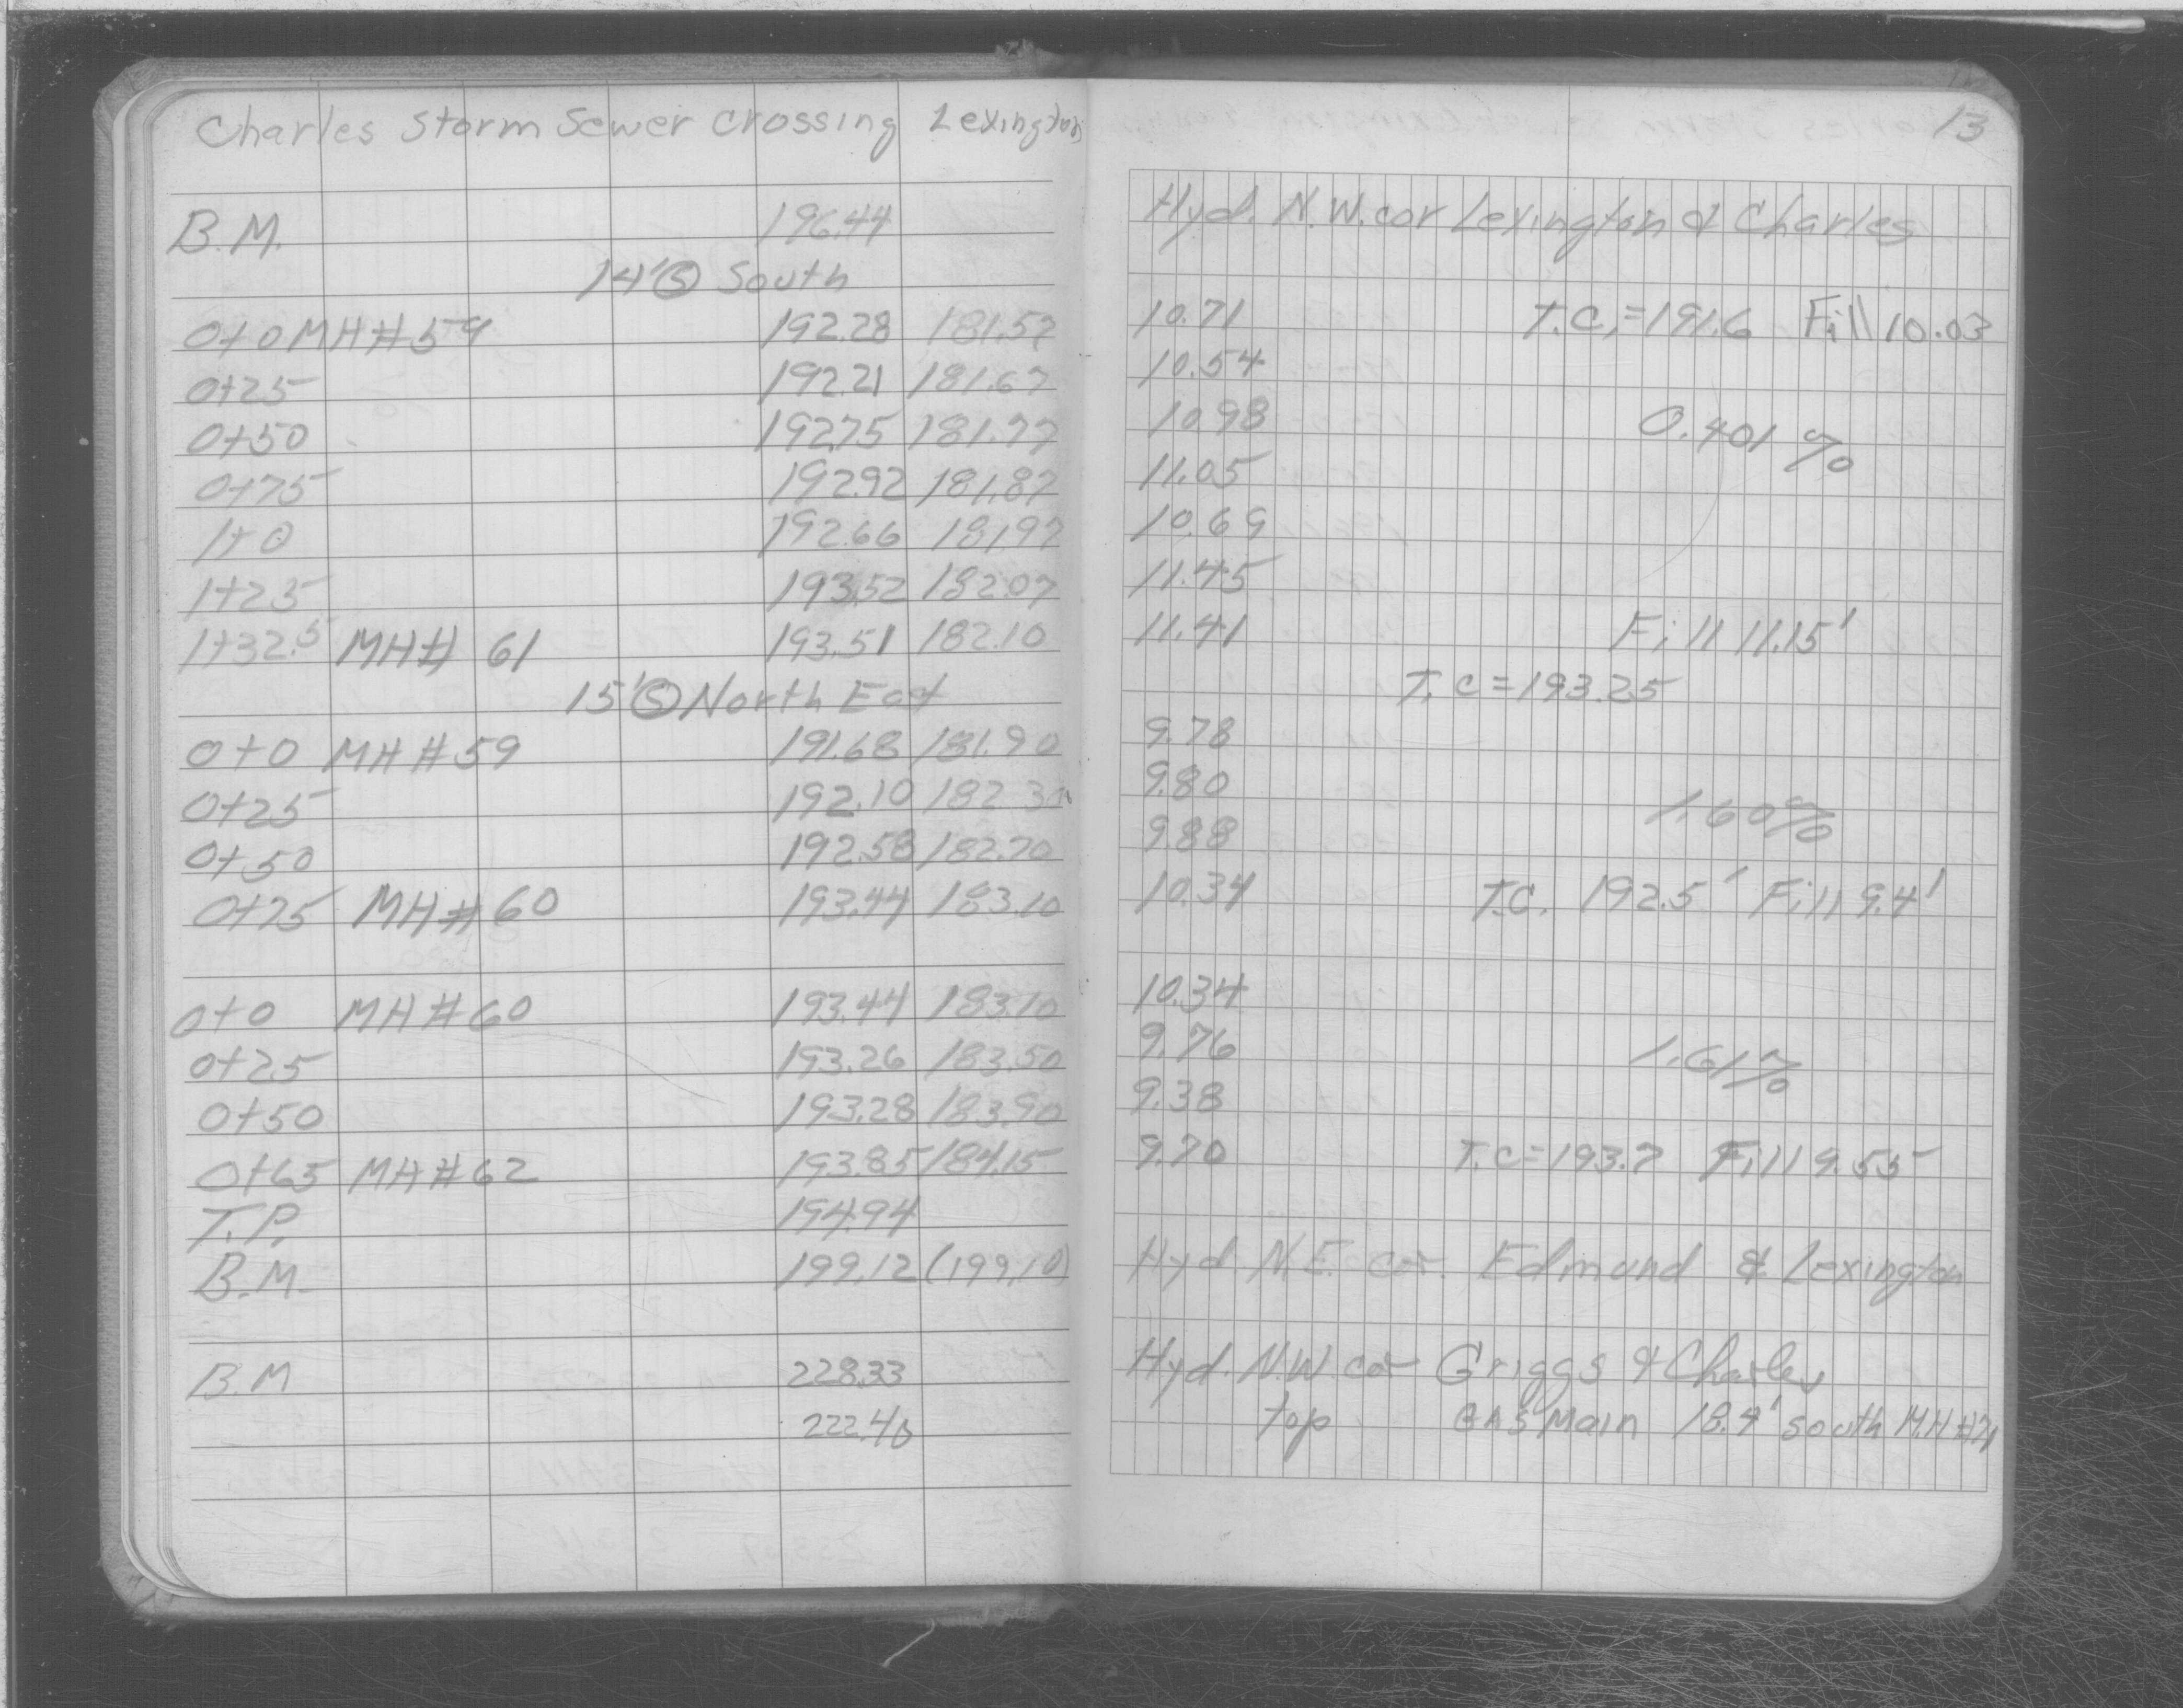 Charles Storm Sewer Crossing Lexington
13
B.M. 196.44 Hyd. N.W. cor Lexington & Charles
14' Ⓢ South
0+0 MH#59 192.28 181.57 10.71 T.C.=191.6 Fill 10.03
0+25 192.21 181.67 10.54
0+50 192.75 181.77 10.98 0.401%
0+75 192.92 181.87 11.05
1+0 192.66 181.97 10.69
1+25 193.52 182.07 11.45
1+32.5 MH# 61 193.51 182.10 11.41 Fill 11.15'
15' Ⓢ North East T.C=193.25
0+0 MH#59 191.68 181.90 9.78
0+25 192.10 182.30 9.80 1.60%
0+50 192.58 182.70 9.88
0+75 MH#60 193.44 183.10 10.34 T.C. 192.5' Fill 9.4'
0+0 MH#60 193.44 183.10 10.34
0+25 193.26 183.50 9.76 1.61%
0+50 193.28 183.90 9.38
0+65 MH#62 193.85 184.15 9.70 T.C=193.7 Fill 9.55
T.P. 194.94
B.M. 199.12 (199.10) Hyd N.E. cor. Edmund & Lexington
B.M 228.33 Hyd. N.W. cor Griggs & Charles
222.40 top GAS Main 18.4' south M.H #71